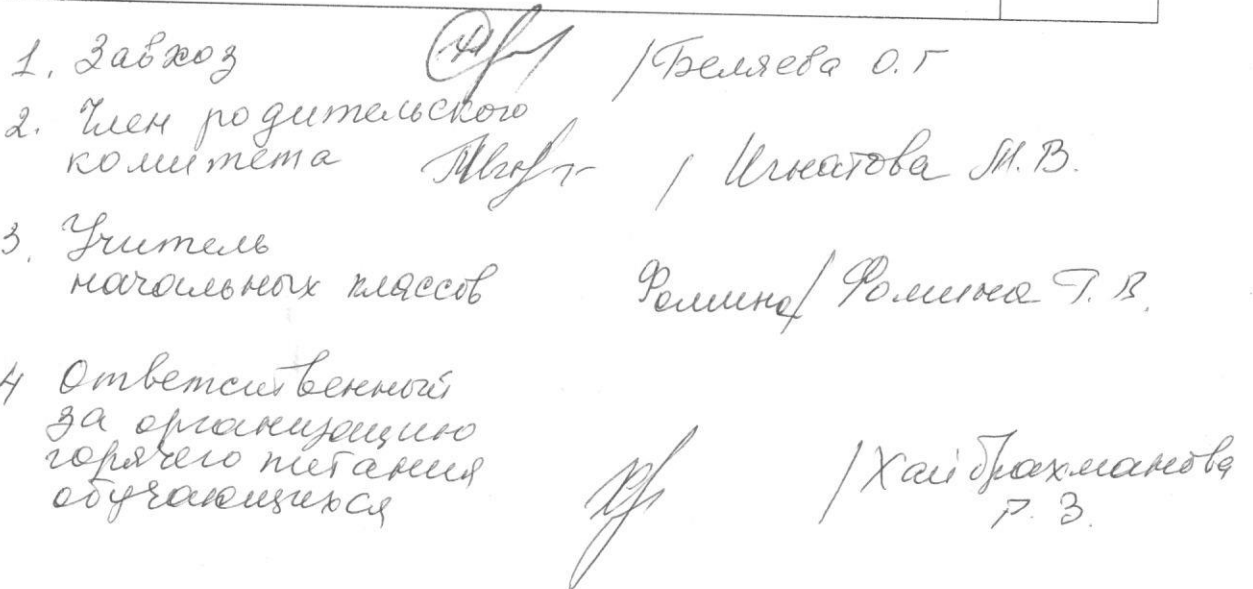 1. Завхоз /Беляева О.Г
2. Член родительского
комитета / Игнатова М.В.
3. Учитель
начальных классов Фомина/ Фомина Т.В.
4 Ответственный
за организацию
горячего питания
обучающихся /Хайбрахманова
Р.З.